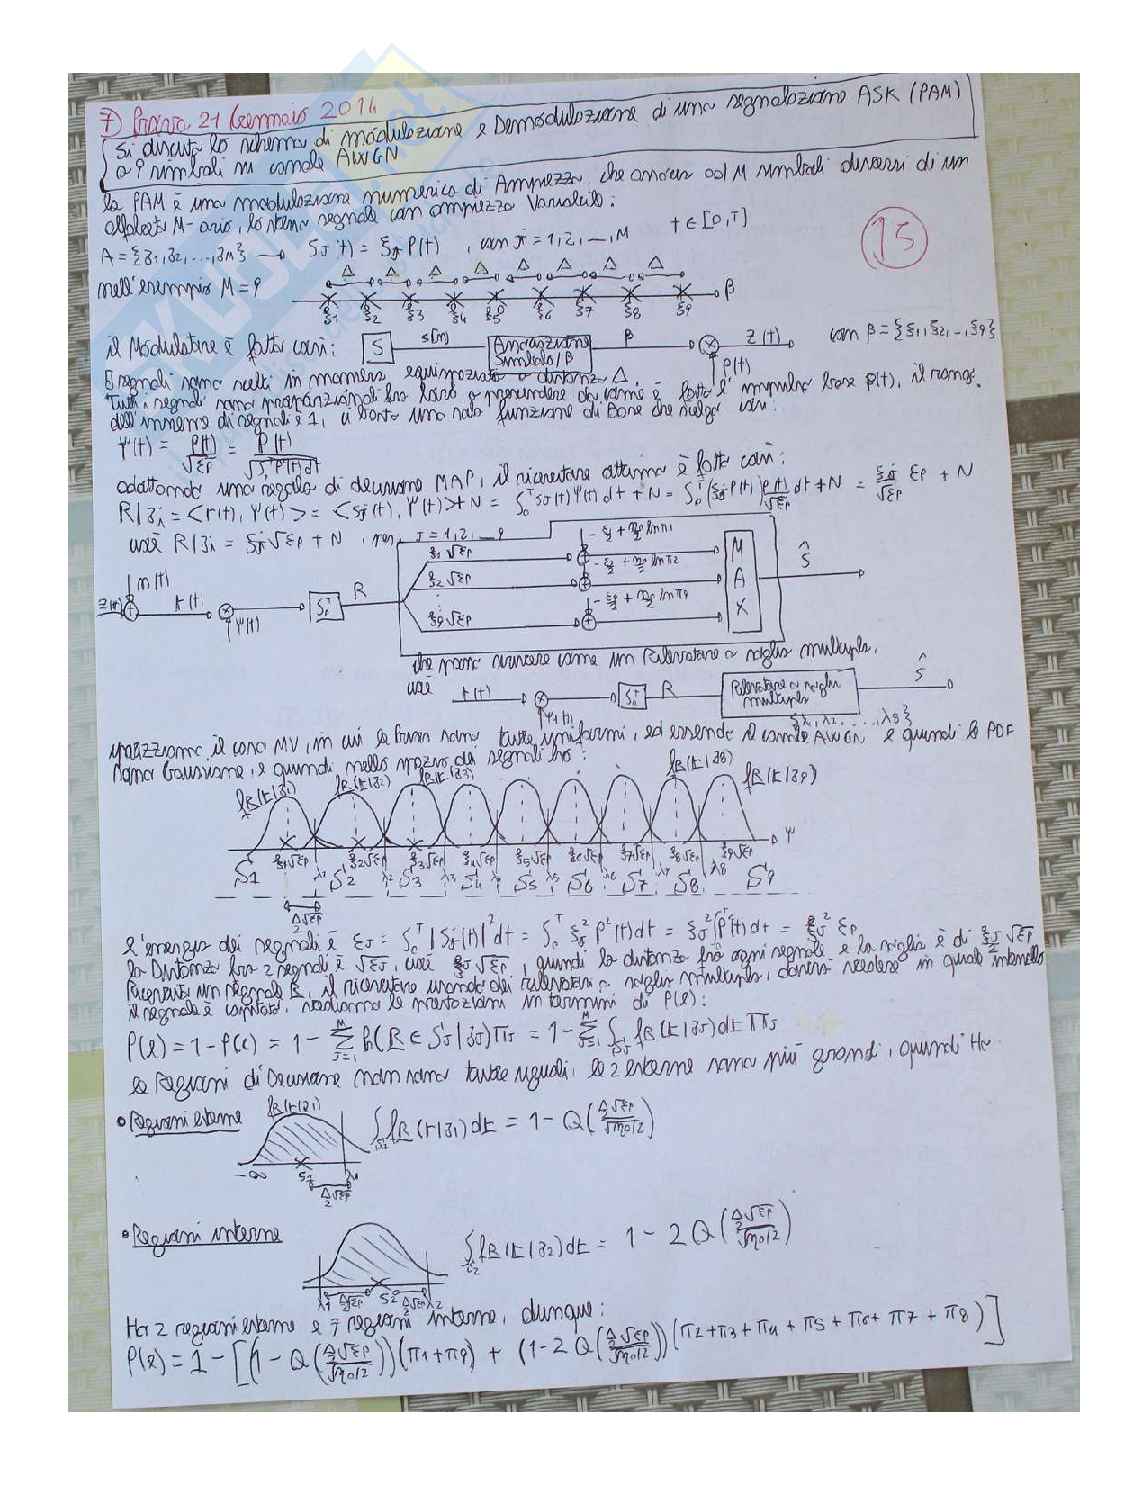 7) Prova 21 Gennaio 2014
Si discuta lo schema di modulazione e Demodulazione di una segnalazione ASK (PAM)
a 9 simboli su canale AWGN
la PAM è una modulazione numerica di Ampiezza che associa ad M simboli diversi di un
alfabeto M-ario, lo stesso segnale con ampiezza Variabile:
A = {z1, z2, ..., zM} → SJ(t) = ξJ P(t) , con J = 1, 2, ..., M t ∈ [0, T]
15
Δ Δ Δ Δ Δ Δ Δ Δ
nell'esempio M = 9 β
ξ1 ξ2 ξ3 ξ4 ξ5 ξ6 ξ7 ξ8 ξ9
il Modulatore è fatto così: S s[n] Associazione Simbolo/β β z(t) con β = {ξ1, ξ2, ..., ξ9}
P(t)
I segnali sono scelti in maniera equispaziata a distanza Δ.
Tutti i segnali sono proporzionali tra loro a prescindere da come è fatto l'impulso base P(t), il rango
dell'insieme di segnali è 1, basta una sola funzione di Base che scelgo così:
Ψ(t) = P(t)/√EP = P(t)/√∫P²(t)dt
adottando una regola di decisione MAP, il ricevitore ottimo è fatto così:
R|zJ = <r(t), Ψ(t)> = <SJ(t), Ψ(t)> + N = ∫0T SJ(t)Ψ(t)dt + N = ∫0T (ξJ P(t)) P(t)/√EP dt + N = ξJ/√EP EP + N
cioè R|zJ = ξJ√EP + N , per J = 1, 2, ... 9
n(t)
z(t) r(t) Ψ(t) ∫0T R
ξ1√EP
ξ2√EP
ξ9√EP
M A X Ŝ
che posso riscrivere come un Rilevatore a soglia multipla,
cioè r(t) Ψ(t) ∫0T R Rilevatore a soglia multipla Ŝ
{λ1, λ2, ..., λ8}
Analizziamo il caso MV, in cui le sono tutte uniformi, ed essendo il canale AWGN e quindi le PDF
sono Gaussiane, e quindi nello spazio dei segnali ho:
fR(r|z1) fR(r|z2) fR(r|z3) fR(r|z8) fR(r|z9)
Ψ
ξ1√EP ξ2√EP ξ3√EP ξ4√EP ξ5√EP ξ6√EP ξ7√EP ξ8√EP ξ9√EP
λ1 λ2 λ3 λ4 λ5 λ6 λ7 λ8
S1 S2 S3 S4 S5 S6 S7 S8 S9
Δ√EP/2
L'energia dei segnali è EJ = ∫0T |SJ(t)|² dt = ∫0T ξJ² P²(t)dt = ξJ² ∫0T P²(t)dt = ξJ² EP
la Distanza tra 2 segnali è √EJ, cioè ξJ√EP, quindi la distanza tra ogni segnale e la soglia è di ξJ/2 √EP
Ricevuto un segnale R, il ricevitore usando dei rilevatori a soglia multipla, dovrà vedere in quale intervallo
il segnale è capitato, vediamo le prestazioni in termini di P(e):
P(e) = 1 - P(c) = 1 - ΣJ=1M Pr(R ∈ SJ|zJ)πJ = 1 - ΣJ=1M ∫SJ fR(r|zJ)dr πJ
le Regioni di Decisione non sono tutte uguali, le 2 esterne sono più grandi, quindi Ho
• Regioni esterne fR(r|z1) ∫S1 fR(r|z1)dr = 1 - Q(Δ/2√EP/√η0/2)
-∞ S1 λ1
Δ/2√EP
• Regioni interne ∫S2 fR(r|z2)dr = 1 - 2Q(Δ/2√EP/√η0/2)
λ1 Δ/2√EP S2 Δ/2√EP λ2
Ho 2 regioni esterne e 7 regioni interne, dunque:
P(e) = 1 - [(1 - Q(Δ/2√EP/√η0/2))(π1+π9) + (1-2Q(Δ/2√EP/√η0/2))(π2+π3+π4+π5+π6+π7+π8)]